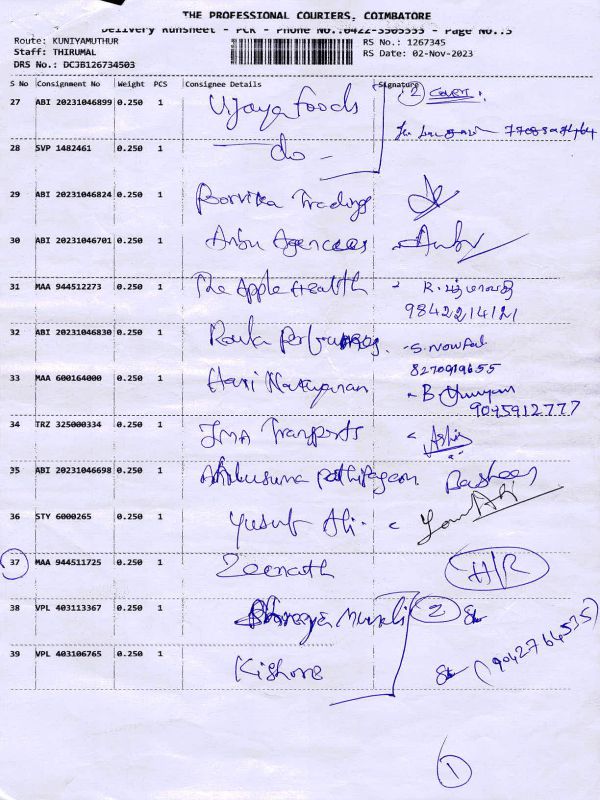 THE PROFESSIONAL COURIERS, COIMBATORE
Delivery Runsheet - PCK - Phone No.:0422-3505555 - Page No.:3
Route: KUNIYAMUTHUR
RS No.: 1267345
Staff: THIRUMAL
RS Date: 02-Nov-2023
DRS No.: DCJB126734503
S No Consignment No Weight PCS Consignee Details Signature
27 ABI 20231046899 0.250 1 Vijaya Foods 2 Cover.
28 SVP 1482461 0.250 1 - do -
29 ABI 20231046824 0.250 1 Trading
30 ABI 20231046701 0.250 1 Anbu Agencees Anbu
31 MAA 944512273 0.250 1 The Apple Health - R. பத்மாவதி
9842214121
32 ABI 20231046830 0.250 1 - S. Nowfal
8270919655
33 MAA 600164000 0.250 1 Hari Narayanan - B
9095912777
34 TRZ 325000334 0.250 1 JMA Tranports
35 ABI 20231046698 0.250 1 Basheer
36 STY 6000265 0.250 1 Yusuf Ali.
37 MAA 944511725 0.250 1 Zeenath H/R
38 VPL 403113367 0.250 1 Murali 2
39 VPL 403106765 0.250 1 Kishore (9042764535)
1